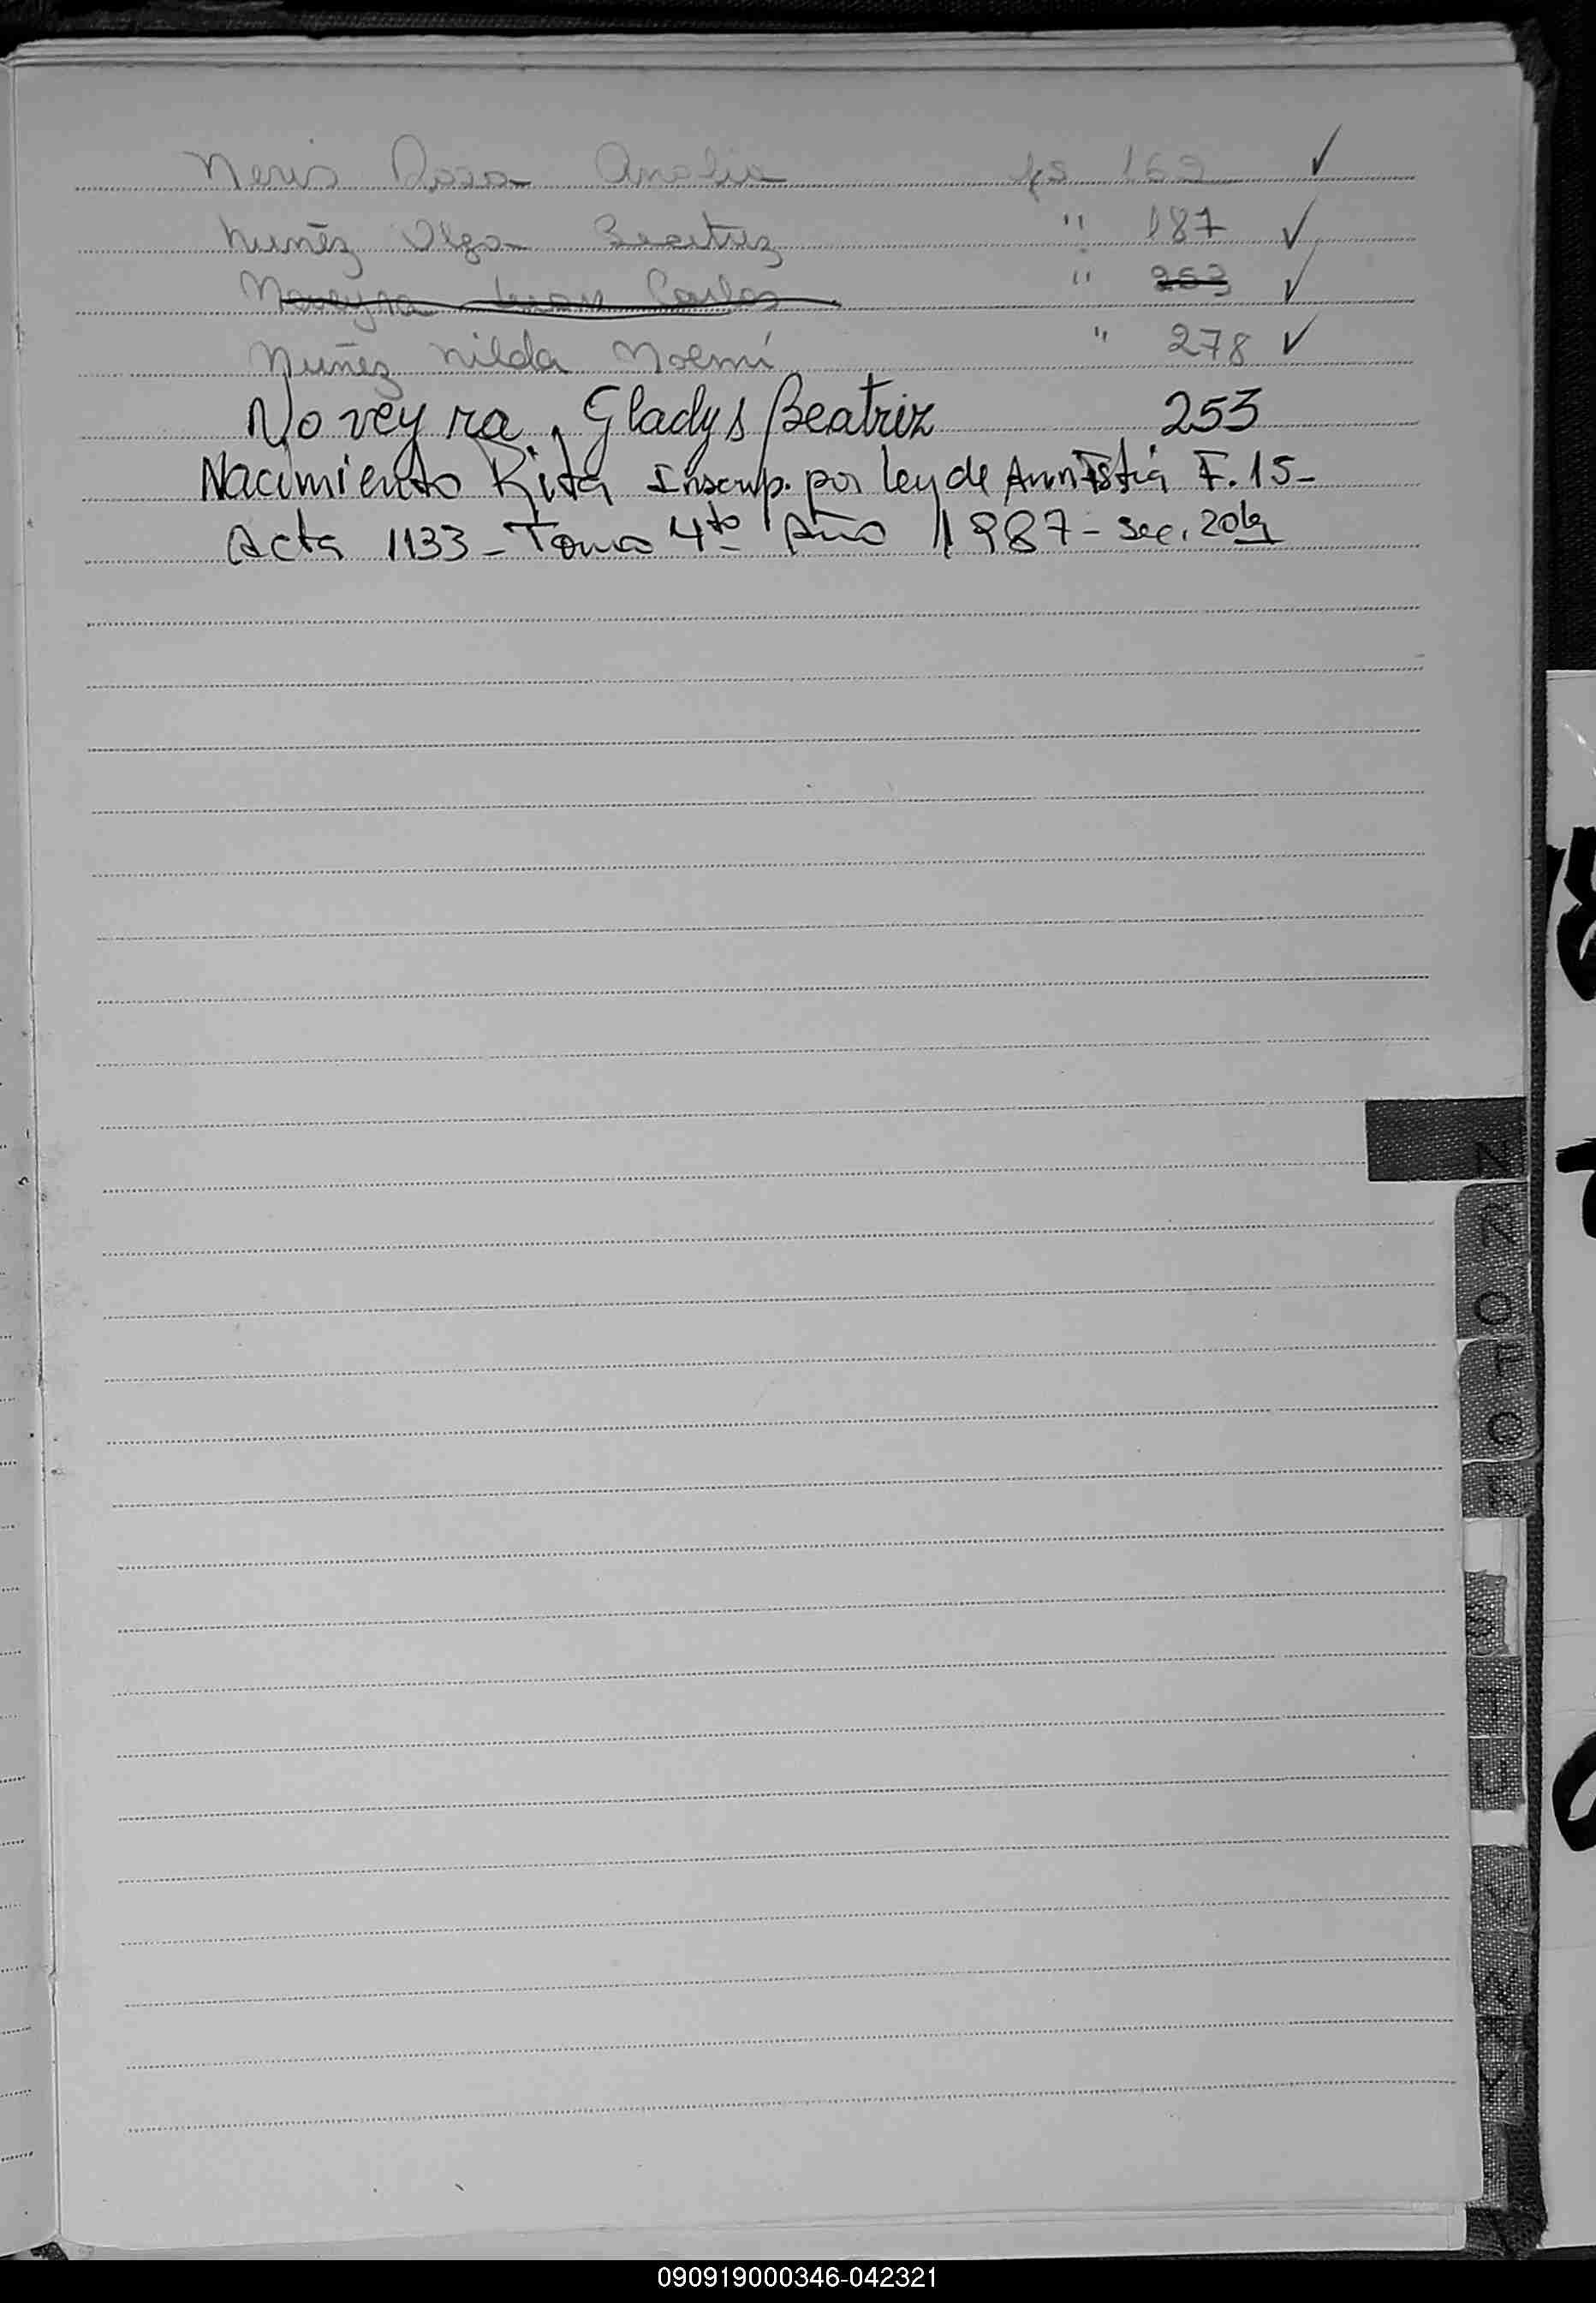 Neris Rosa Analia fs 169 ✓
Nuñez Olga Beatriz " 187 ✓
Noveyra Juan Carlos " 253 ✓
Nuñez Nilda Noemí " 278 ✓
Noveyra, Gladys Beatriz 253
Nacimiento Rita Inscrip. por ley de Amnistia F. 15-
Acta 1133 - Tomo 4to Año 1987 - Sec. 20
N
N
O
T
U
090919000346-042321